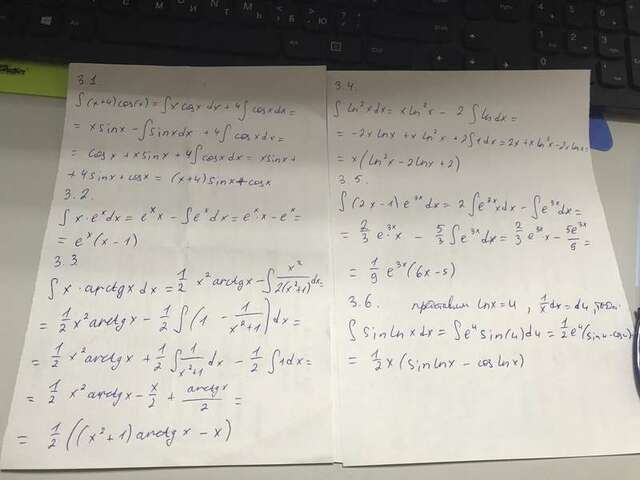 3.1
∫(x+4)cos(x) = ∫x cosx dx + 4∫cosx dx =
= x sinx - ∫sinx dx + 4∫cosx dx =
= cosx + x sinx + 4∫cosx dx = x sinx +
+ 4 sinx + cosx = (x+4) sinx + cosx
3.2.
∫x·eˣdx = eˣx - ∫eˣdx = eˣ·x - eˣ =
= eˣ(x-1)
3.3
∫x·arctgx dx = 1/2 x² arctgx - ∫x²/2(x²+1) dx =
= 1/2 x² arctgx - 1/2 ∫(1 - 1/(x²+1)) dx =
= 1/2 x² arctgx + 1/2 ∫1/(x²+1) dx - 1/2 ∫1dx =
= 1/2 x² arctgx - x/2 + arctgx/2 =
= 1/2 ((x²+1) arctgx - x)
3.4.
∫ln²x dx = x ln²x - 2∫lnx dx =
= -2x lnx + x ln²x + 2∫1dx = 2x + x ln²x - 2x lnx =
= x(ln²x - 2lnx + 2)
3.5.
∫(2x-1)e³ˣdx = 2∫e³ˣx dx - ∫e³ˣdx =
= 2/3 e³ˣx - 5/3 ∫e³ˣdx = 2/3 e³ˣx - 5e³ˣ/9 =
= 1/9 e³ˣ(6x-5)
3.6. lnx = u, 1/x dx = du,
∫sin lnx dx = ∫eᵘ sin(u) du = 1/2 eᵘ(sinu - cosu)
= 1/2 x (sin lnx - cos lnx)